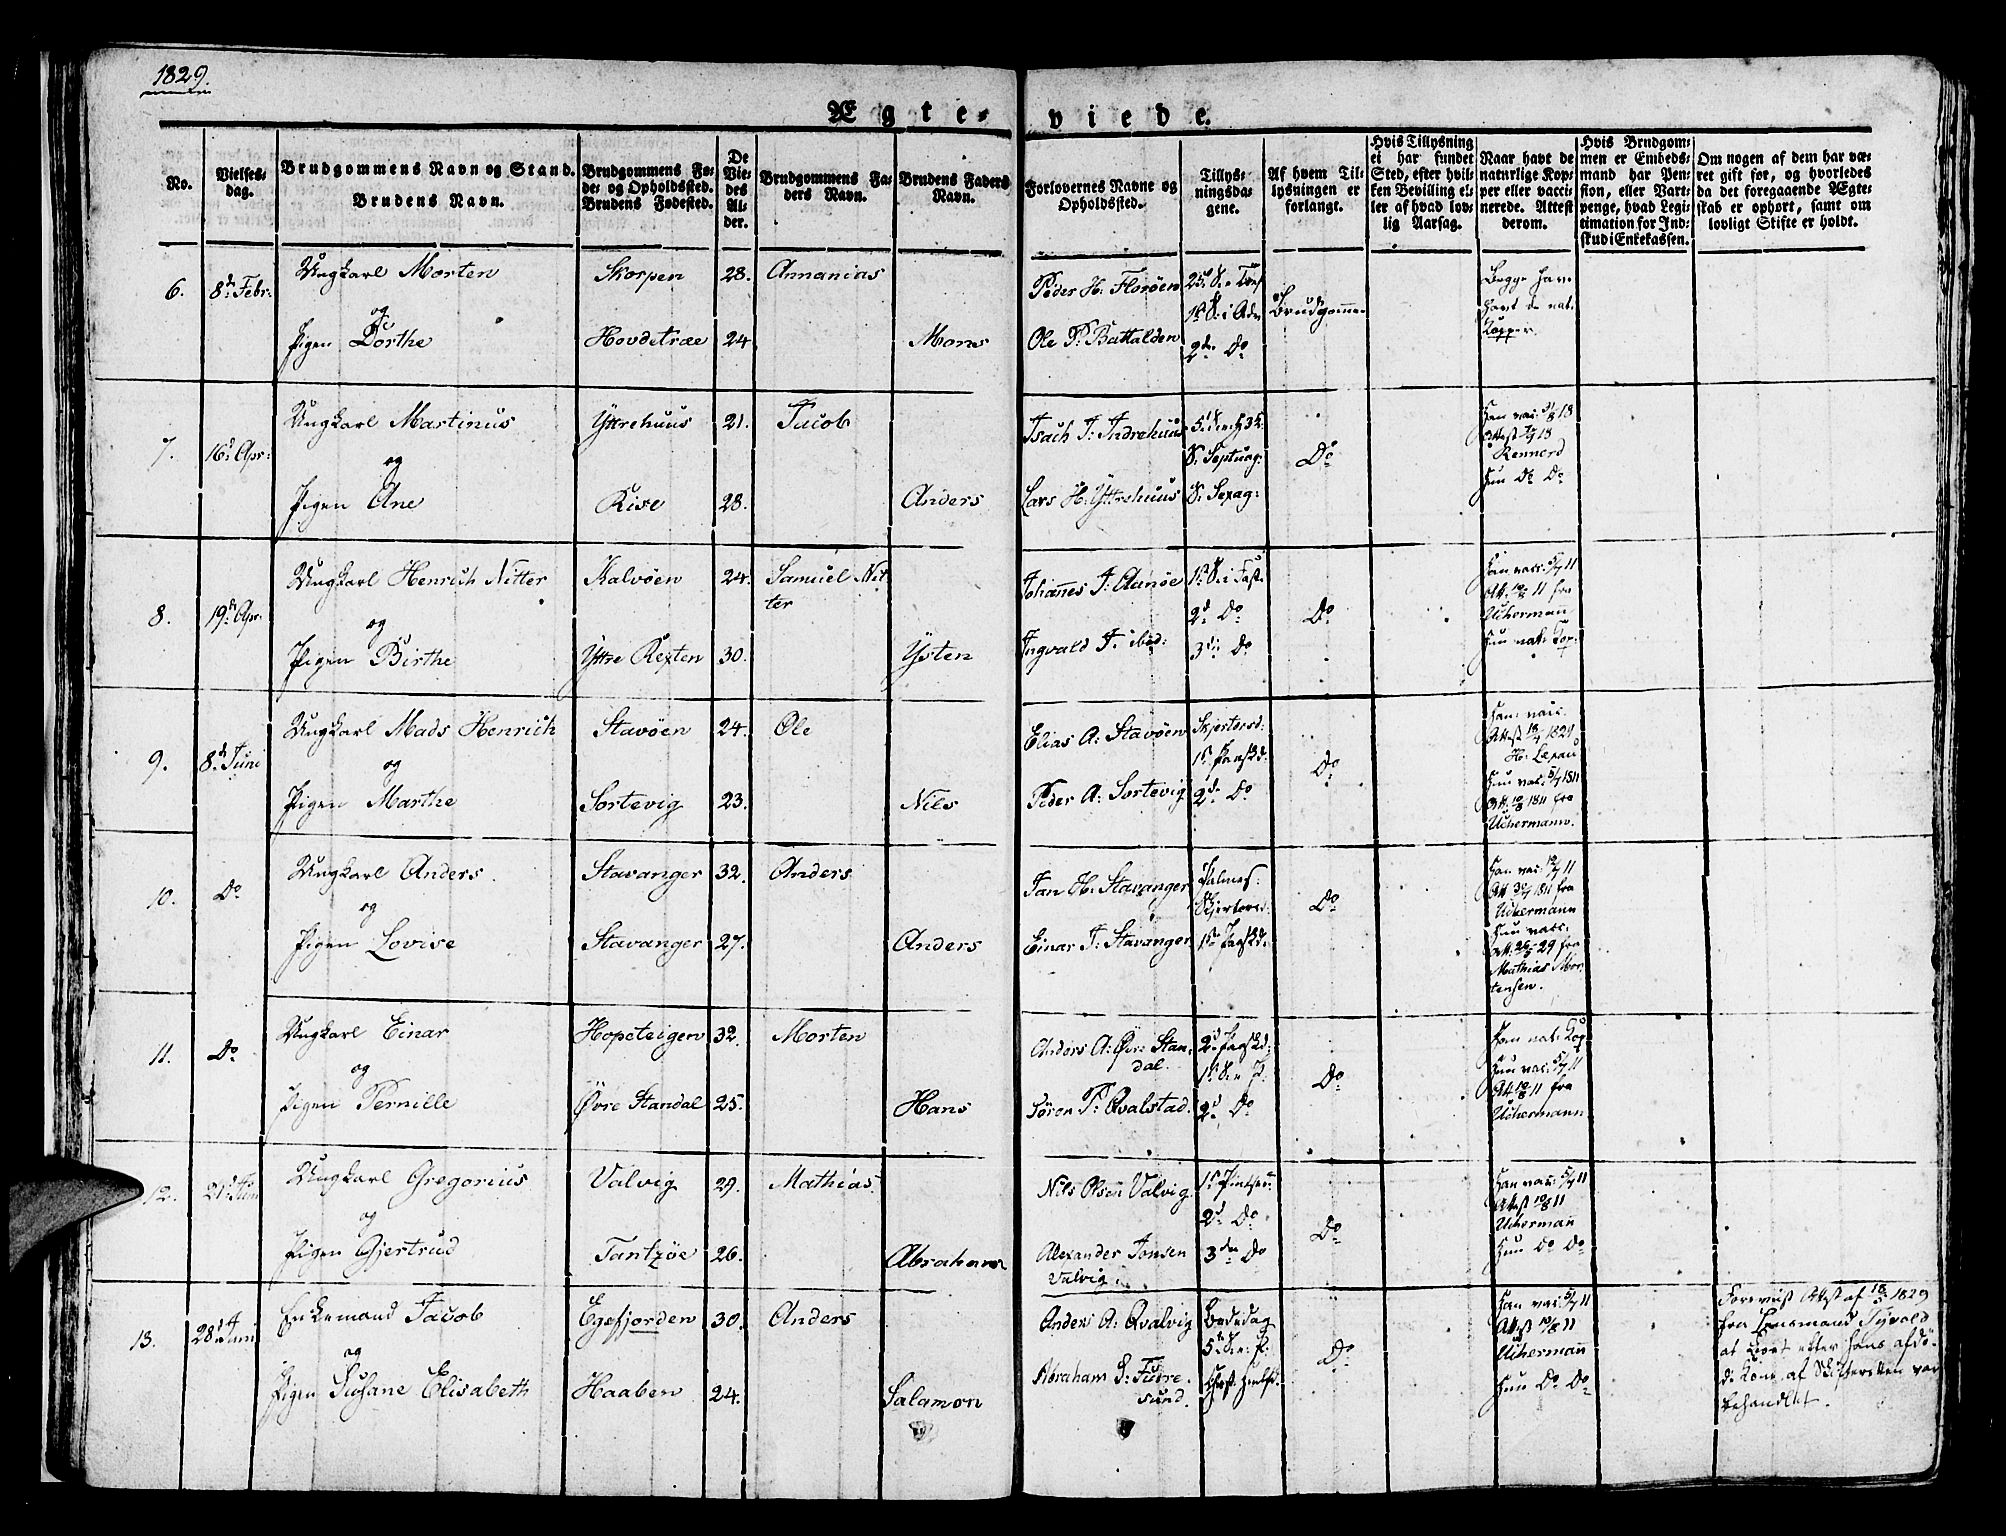 1829.
Ægte-viede.
No.
Vielses-
dag.
Brudgommens Navn og Stand.
Brudens Navn.
Brudgommens Fø-
de- og Opholdssted.
Brudens Fødested.
De
Vie-
des
Al-
der.
Brudgommens Fa-
ders Navn.
Brudens Faders
Navn.
Forlovernes Navne og
Opholdssted.
Tillys-
ningsda-
gene.
Af hvem Til-
lysningen er
forlangt.
Hvis Tillysning
ei har fundet
Sted, efter hvil-
ken Bevilling el-
ler af hvad lov-
lig Aarsag.
Naar havt de
naturlige Kop-
per eller vacci-
nerede. Attest
derom.
Hvis Brudgom-
men er Embeds-
mand har Pen-
sion, eller Vart-
penge, hvad Legi-
timation for Ind-
skud i Enkekassen.
Om nogen af dem har væ-
ret gift før, og hvorledes
da det foregaaende Ægte-
skab er ophørt, samt om
lovligt Skifte er holdt.
6.
8de Febr.
Ungkarl Morten
og
Pigen Dorthe
Skorpen
Hovdetræe
28.
24
Annanias
Mons
Peder H: Florøen
Ole P: Battalden
1ste S: i Adv
2den Do
Brudgommen
Begge have
havt de nat:
Kopper.
7.
16de Apr:
Ungkarl Martinus
og
Pigen Ane
Yttrehuus
Rise
21.
28.
Jacob
Anders
Isach J: Indrehuus
Lars H: Yttrehuus
S: Septuag:
S: Sexag:
Do
Han vac:
Attest
Rennord
Hun Do Do
8.
19de Apr:
Ungkarl Henrich Nitter
og
Pigen Birthe
Kalvøen
Yttre Rexten
24.
30.
Samuel Nit
ter
Ysten
Johannes J: Aanøe
Ingvald J: ibid:
1ste S: i Fast:
2d: Do
3di: Do
Do
Han vacc: 5/7 11
Att. 10/8 11 fra
Ucherman
Hun nat: Kop:
9.
8de Juni
Ungkarl Mads Henrich
og
Pigen Marthe
Stavøen
Sortevig
24.
23.
Ole
Nils
Elias A: Stavøen
Peder A: Sortevig
Skjertorsd:
1ste Paaskd:
2d: Do
Do
Han vacc.
Attest 1829
H: Lexau
Hun vac: 5/7 1811
Att. 10/8 1811 fra
Uchermann.
10.
Do
Ungkarl Anders
og
Pigen Lovise
Stavanger
Stavanger
32.
27.
Anders
Anders
Jan H: Stavanger
Einar J: Stavanger
Palmes:
Skjertorsd:
1ste Paaskd:
Do
Han vac: 11
Att 1811 fra
Uchermann
Hun vacc.
Att: 29 fra
Mathias Mor-
tensen.
11.
Do
Ungkarl Einar
og
Pigen Pernille
Hopeteigen
Øvre Standal
32.
25.
Morten
Hans
Anders A: Øvr: Stan-
dal.
Søren P: Qvalstad.
2d: Paaskd:
1ste S: e P:
2d: Do
Do
Ham nat: Kop
Hun vac: 5/7 11
Att 10/8 11 fra
Uchermann
12.
21de Juni
Ungkarl Gregorius
og
Pigen Gjertrud
Valvig
Tantzøe
29.
26.
Mathias
Abraham
Nils Olsen Valvig
Alexander Jonsen
Valvig.
1ste Pintsed:
2d: Do
3die Do
Do
Han vac: 5/7 11
Attest 10/8 11
Ucherman
Hun Do Do
13.
28de Juni
Enkemand Jacob
og
Pigen Susane Elisabeth
Egefjorden
Haaben
30.
24.
Anders
Salamon
Anders A: Qvalvig
Abraham S: Fure-
sund.
Bededag
5te S: e: P:
Christ: Himlfd:
Do
Han vac: 5/7 11
Attest 10/8 11
Ucherman
Hun Do Do
Foreviist Attest af 1829
fra Lensmand
at Boet efter hans afdø-
de Kone af Skifteretten var
behandlet.